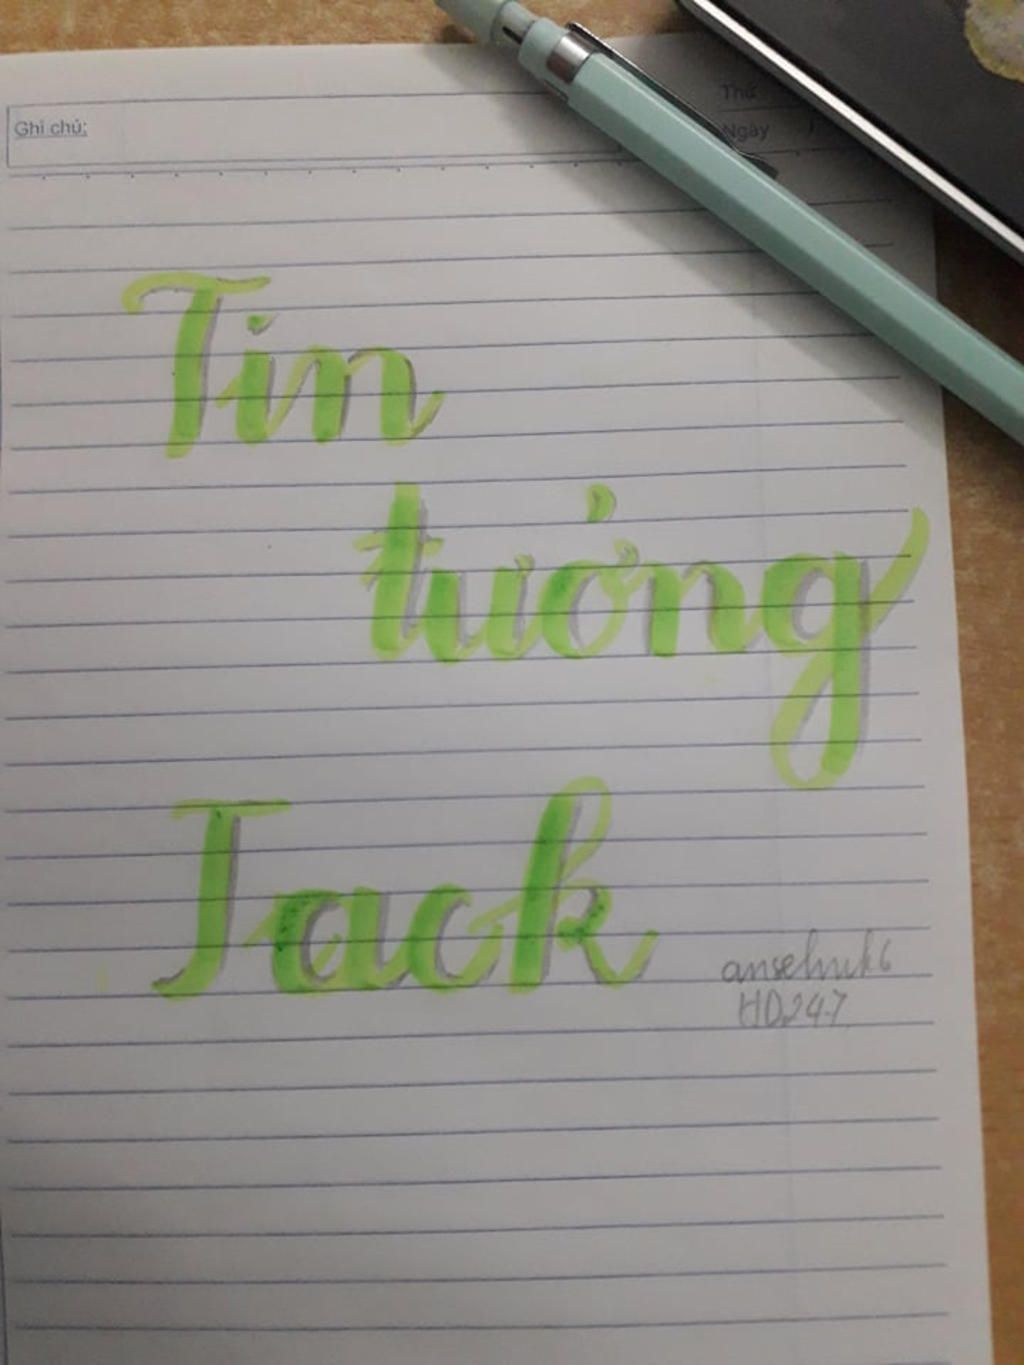 Ghi chú:
Thứ
Ngày /
Tin
tưởng
Jack
HD247